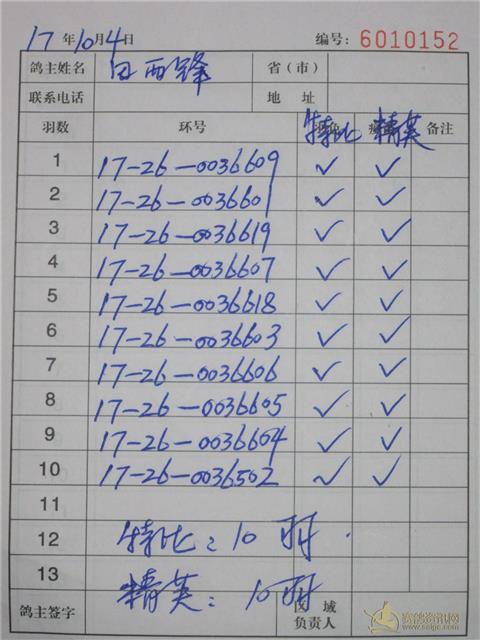 17年10月4日 编号：6010152
鸽主姓名 白西锋 省（市）
联系电话 地 址
羽数 环号 特比 精英 备注
1 17-26-0036609 ✓ ✓
2 17-26-0036601 ✓ ✓
3 17-26-0036619 ✓ ✓
4 17-26-0036607 ✓ ✓
5 17-26-0036618 ✓ ✓
6 17-26-0036603 ✓ ✓
7 17-26-0036606 ✓ ✓
8 17-26-0036605 ✓ ✓
9 17-26-0036604 ✓ ✓
10 17-26-0036502 ✓ ✓
11
12 特比：10羽.
13 精英：10羽
鸽主签字 区 域
负责人
赛鸽资讯网
www.saige.com